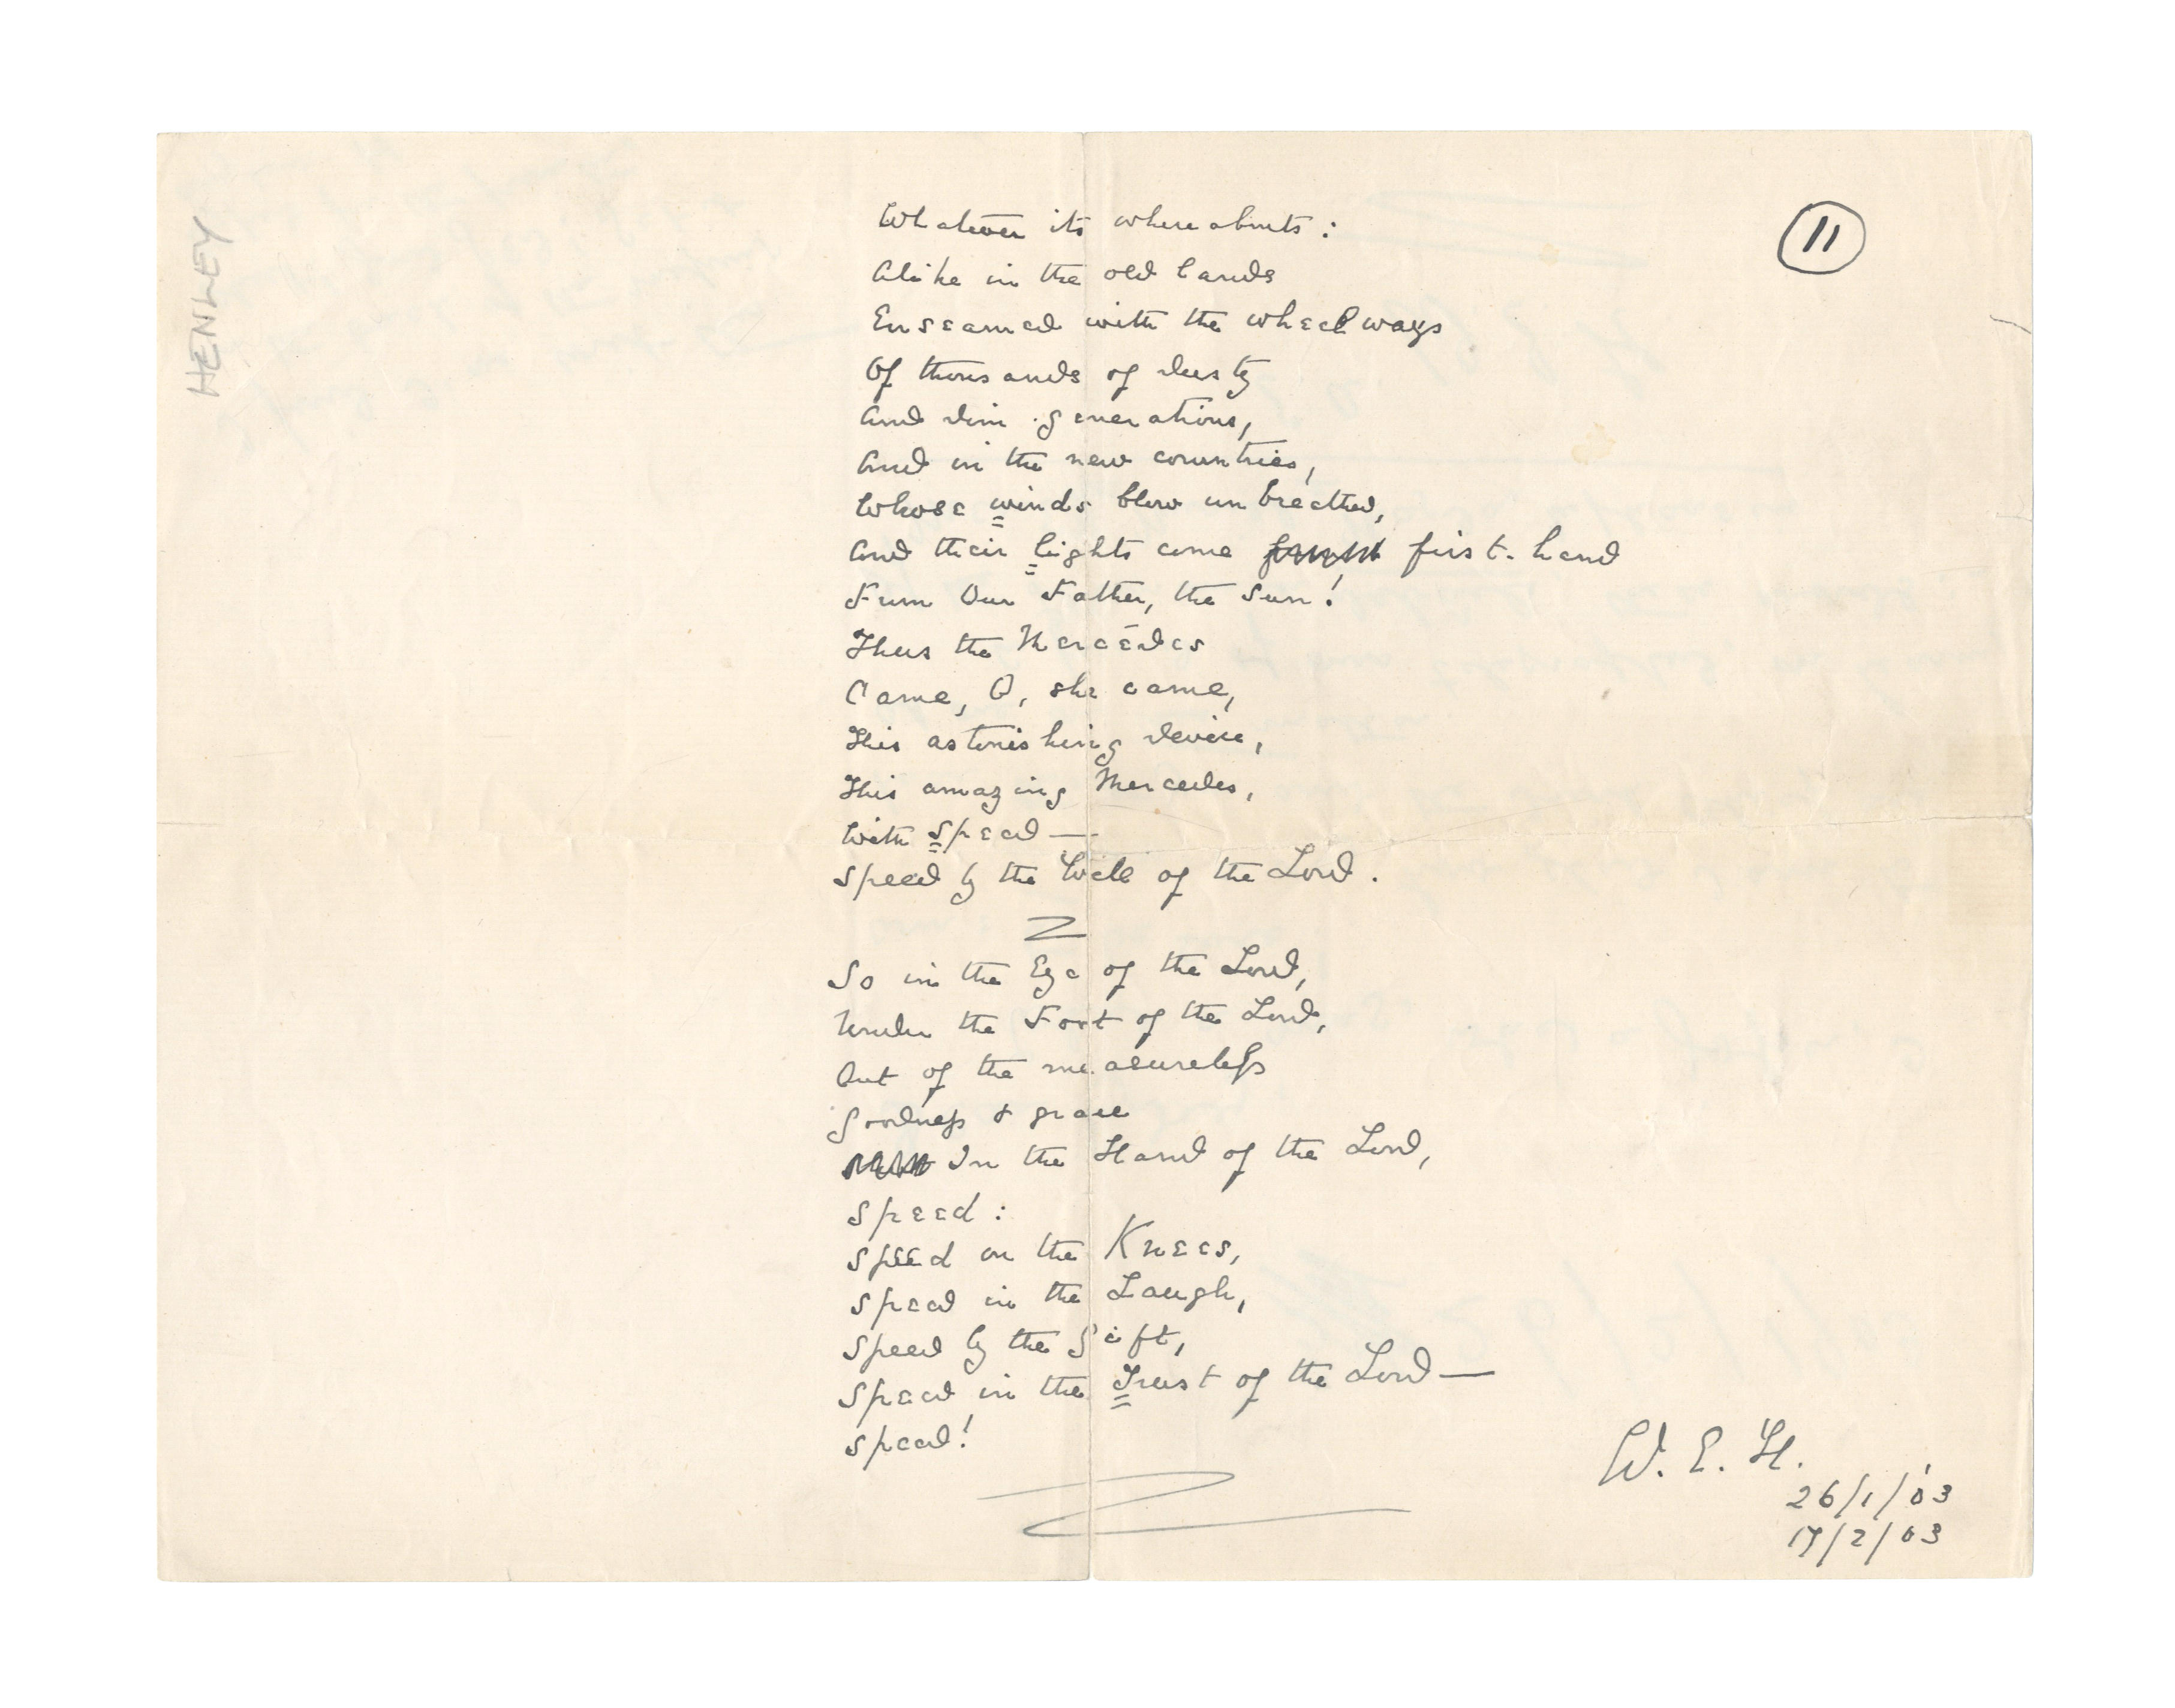 HENLEY
11
Whatever its whereabouts:
Alike in the old lands
Enseamed with the wheelways
Of thousands of dusty
And dim generations,
And in the new countries,
Whose winds blow unbreathed,
And their lights come first-hand
From Our Father, the Sun!
Thus the Mercédes
Came, O, she came,
This astonishing device,
This amazing Mercedes,
With Speed —
Speed by the Will of the Lord.
So in the Eye of the Lord,
Under the Foot of the Lord,
Out of the measureless
Goodness & grace
In the Hand of the Lord,
Speed:
Speed on the Knees,
Speed in the Laugh,
Speed by the Gift,
Speed in the Trust of the Lord —
Speed!
W. E. H.
26/1/'03
17/2/03